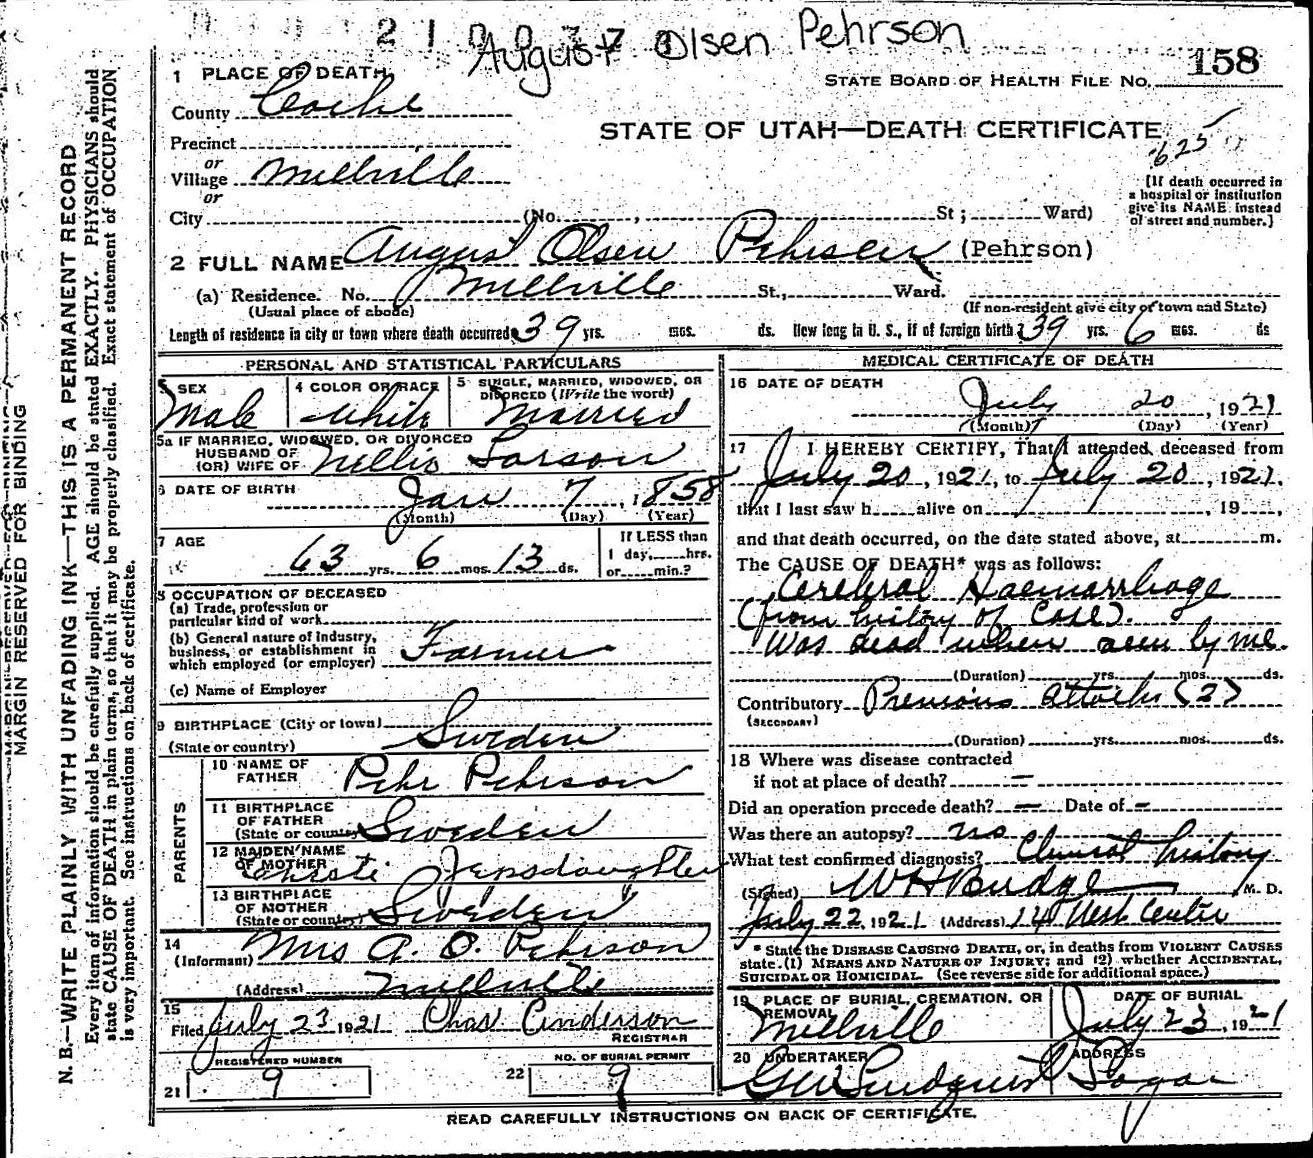 21003771
August Olsen Pehrson
1 PLACE OF DEATH
STATE BOARD OF HEALTH FILE NO. 158
County Cache
STATE OF UTAH—DEATH CERTIFICATE
625
Precinct
or
Village Millville
or
[If death occurred in
a hospital or institution
give its NAME instead
of street and number.]
City (No. , St; Ward)
2 FULL NAME August Olsen Pehrsen (Pehrson)
(a) Residence. No. Millville St., Ward.
(Usual place of abode) (If non-resident give city or town and State)
Length of residence in city or town where death occurred 39 yrs. mos. ds. How long in U. S., if of foreign birth? 39 yrs. 6 mos. ds
PERSONAL AND STATISTICAL PARTICULARS
3 SEX
Male
4 COLOR OR RACE
White
5 SINGLE, MARRIED, WIDOWED, OR
DIVORCED (Write the word)
Married
5a IF MARRIED, WIDOWED, OR DIVORCED
HUSBAND OF
(OR) WIFE OF Nellie Larson
6 DATE OF BIRTH Jan 7, 1858
(Month) (Day) (Year)
7 AGE
63 yrs. 6 mos. 13 ds.
If LESS than
1 day, hrs.
or min.?
8 OCCUPATION OF DECEASED
(a) Trade, profession or
particular kind of work
(b) General nature of industry,
business, or establishment in
which employed (or employer) Farmer
(c) Name of Employer
9 BIRTHPLACE (City or town)
(State or country) Sweden
PARENTS
10 NAME OF
FATHER Pehr Pehrson
11 BIRTHPLACE
OF FATHER
(State or country) Sweden
12 MAIDEN NAME
OF MOTHER Christi Jepsdaughter
13 BIRTHPLACE
OF MOTHER
(State or country) Sweden
14
(Informant) Mrs A. O. Pehrson
(Address) Millville
15
Filed July 23 1921 Chas Anderson
REGISTRAR
REGISTERED NUMBER
21 9
NO. OF BURIAL PERMIT
22 9
MEDICAL CERTIFICATE OF DEATH
16 DATE OF DEATH
July 20, 1921
(Month) (Day) (Year)
17 I HEREBY CERTIFY, That I attended deceased from
July 20, 1921, to July 20, 1921,
that I last saw h alive on , 19 ,
and that death occurred, on the date stated above, at m.
The CAUSE OF DEATH* was as follows:
Cerebral Haemorrhage
(from history of case).
Was dead when seen by me.
(Duration) yrs. mos. ds.
Contributory Previous attacks (2)
(SECONDARY)
(Duration) yrs. mos. ds.
18 Where was disease contracted
if not at place of death? —
Did an operation precede death? — Date of —
Was there an autopsy? no
What test confirmed diagnosis? Clinical history
(Signed) W H Budge M. D.
July 22, 1921 (Address) 14 West Center
* State the DISEASE CAUSING DEATH, or, in deaths from VIOLENT CAUSES
state (1) MEANS AND NATURE OF INJURY; and (2) whether ACCIDENTAL,
SUICIDAL OR HOMICIDAL. (See reverse side for additional space.)
19 PLACE OF BURIAL, CREMATION, OR
REMOVAL
Millville
DATE OF BURIAL
July 23, 1921
20 UNDERTAKER
G W Lindquist
ADDRESS
Logan
READ CAREFULLY INSTRUCTIONS ON BACK OF CERTIFICATE.
MARGIN RESERVED FOR BINDING
N. B.—WRITE PLAINLY WITH UNFADING INK—THIS IS A PERMANENT RECORD
Every item of information should be carefully supplied. AGE should be stated EXACTLY. PHYSICIANS should
state CAUSE OF DEATH in plain terms, so that it may be properly classified. Exact statement of OCCUPATION
is very important. See instructions on back of certificate.